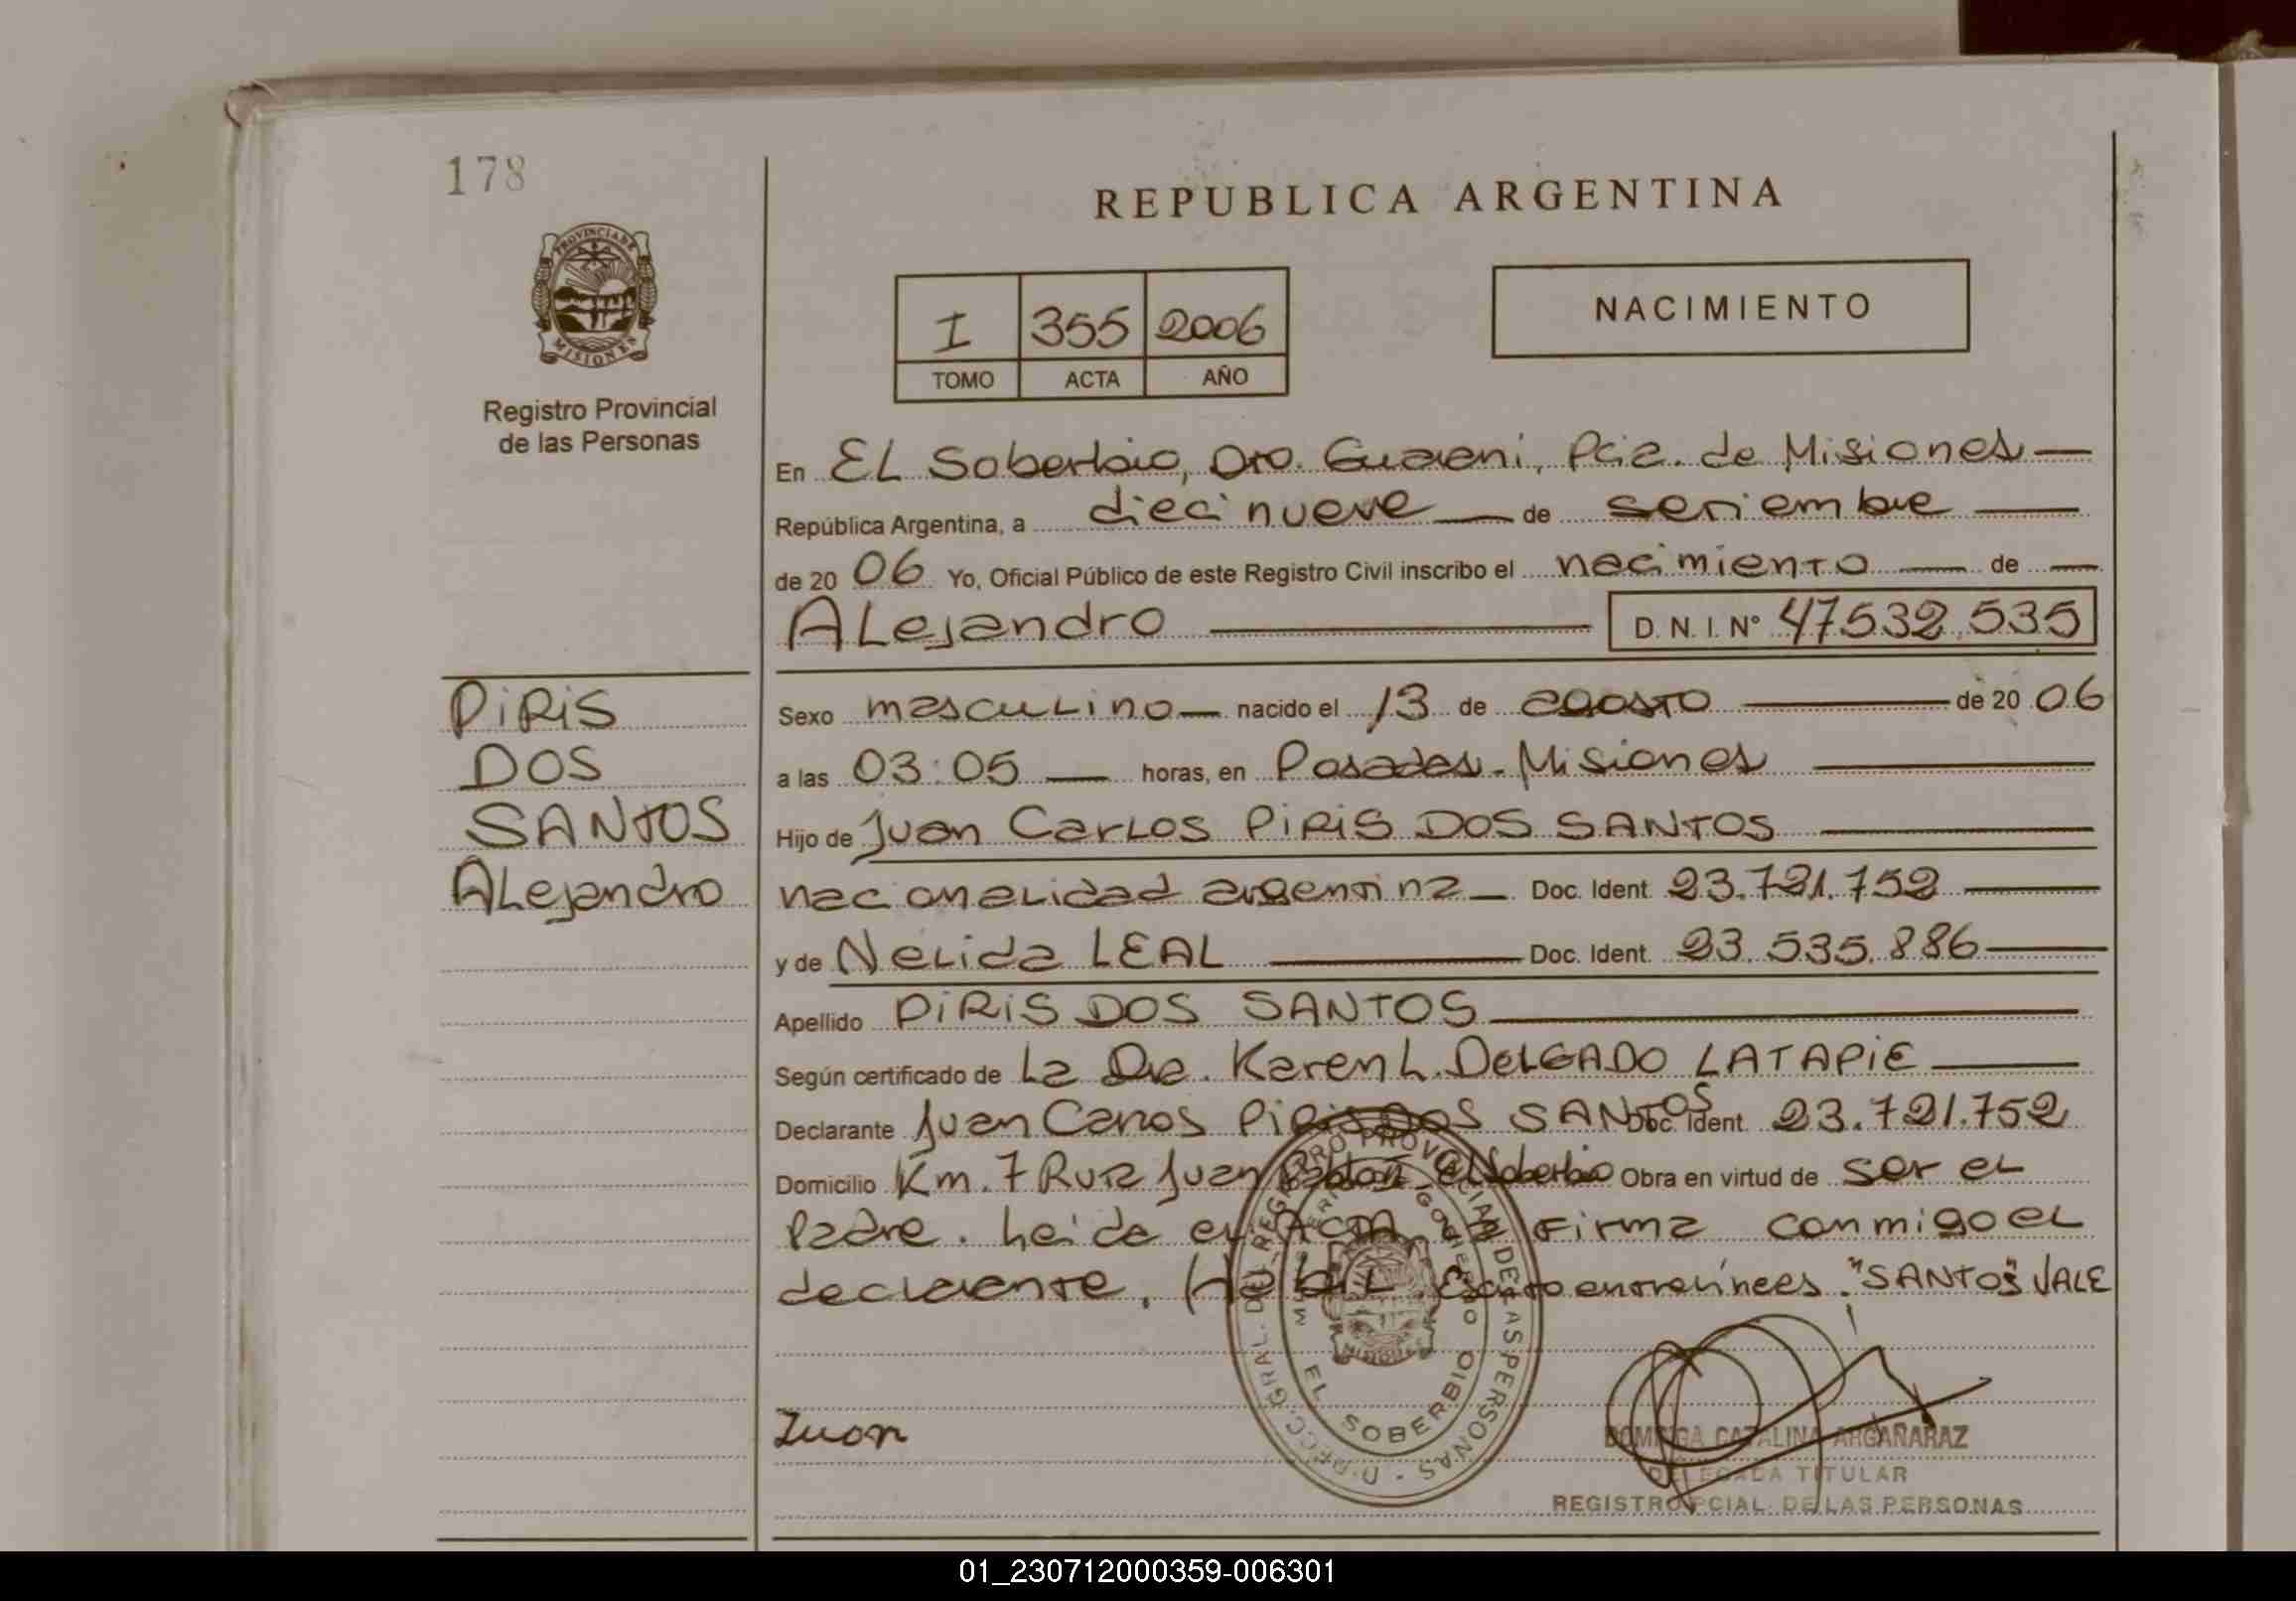 178
REPUBLICA ARGENTINA
PROVINCIA DE
MISIONES
Registro Provincial
de las Personas
I 355 2006
TOMO ACTA AÑO
NACIMIENTO
En EL Soberbio, Dto. Guarani, Pcia. de Misiones
República Argentina, a diecinueve de setiembre
de 20 06 Yo, Oficial Público de este Registro Civil inscribo el nacimiento de
ALejandro D.N.I. Nº 47.532.535
PIRIS
DOS
SANTOS
ALejandro
Sexo masculino nacido el 13 de agosto de 20 06
a las 03:05 horas, en Posadas-Misiones
Hijo de Juan Carlos PIRIS DOS SANTOS
nacionalidad argentina Doc. Ident. 23.721.752
y de Nelida LEAL Doc. Ident. 23.535.886
Apellido PIRIS DOS SANTOS
Según certificado de La Dra. Karen L. DELGADO LATAPIE
Declarante Juan Carlos PIRIS DOS SANTOS Doc. Ident. 23.721.752
Domicilio Km. 7 Ruta Juan El Soberbio Obra en virtud de ser el
Padre. Leida el Acta, la firma conmigo el
declarante. entrelineas: "SANTOS" VALE
Juan
DIRECC. GRAL. DEL REGISTRO PROVINCIAL DE LAS PERSONAS
EL SOBERBIO
DOMINGA CATALINA ARGAÑARAZ
DELEGADA TITULAR
REGISTRO PCIAL. DE LAS PERSONAS
01_230712000359-006301